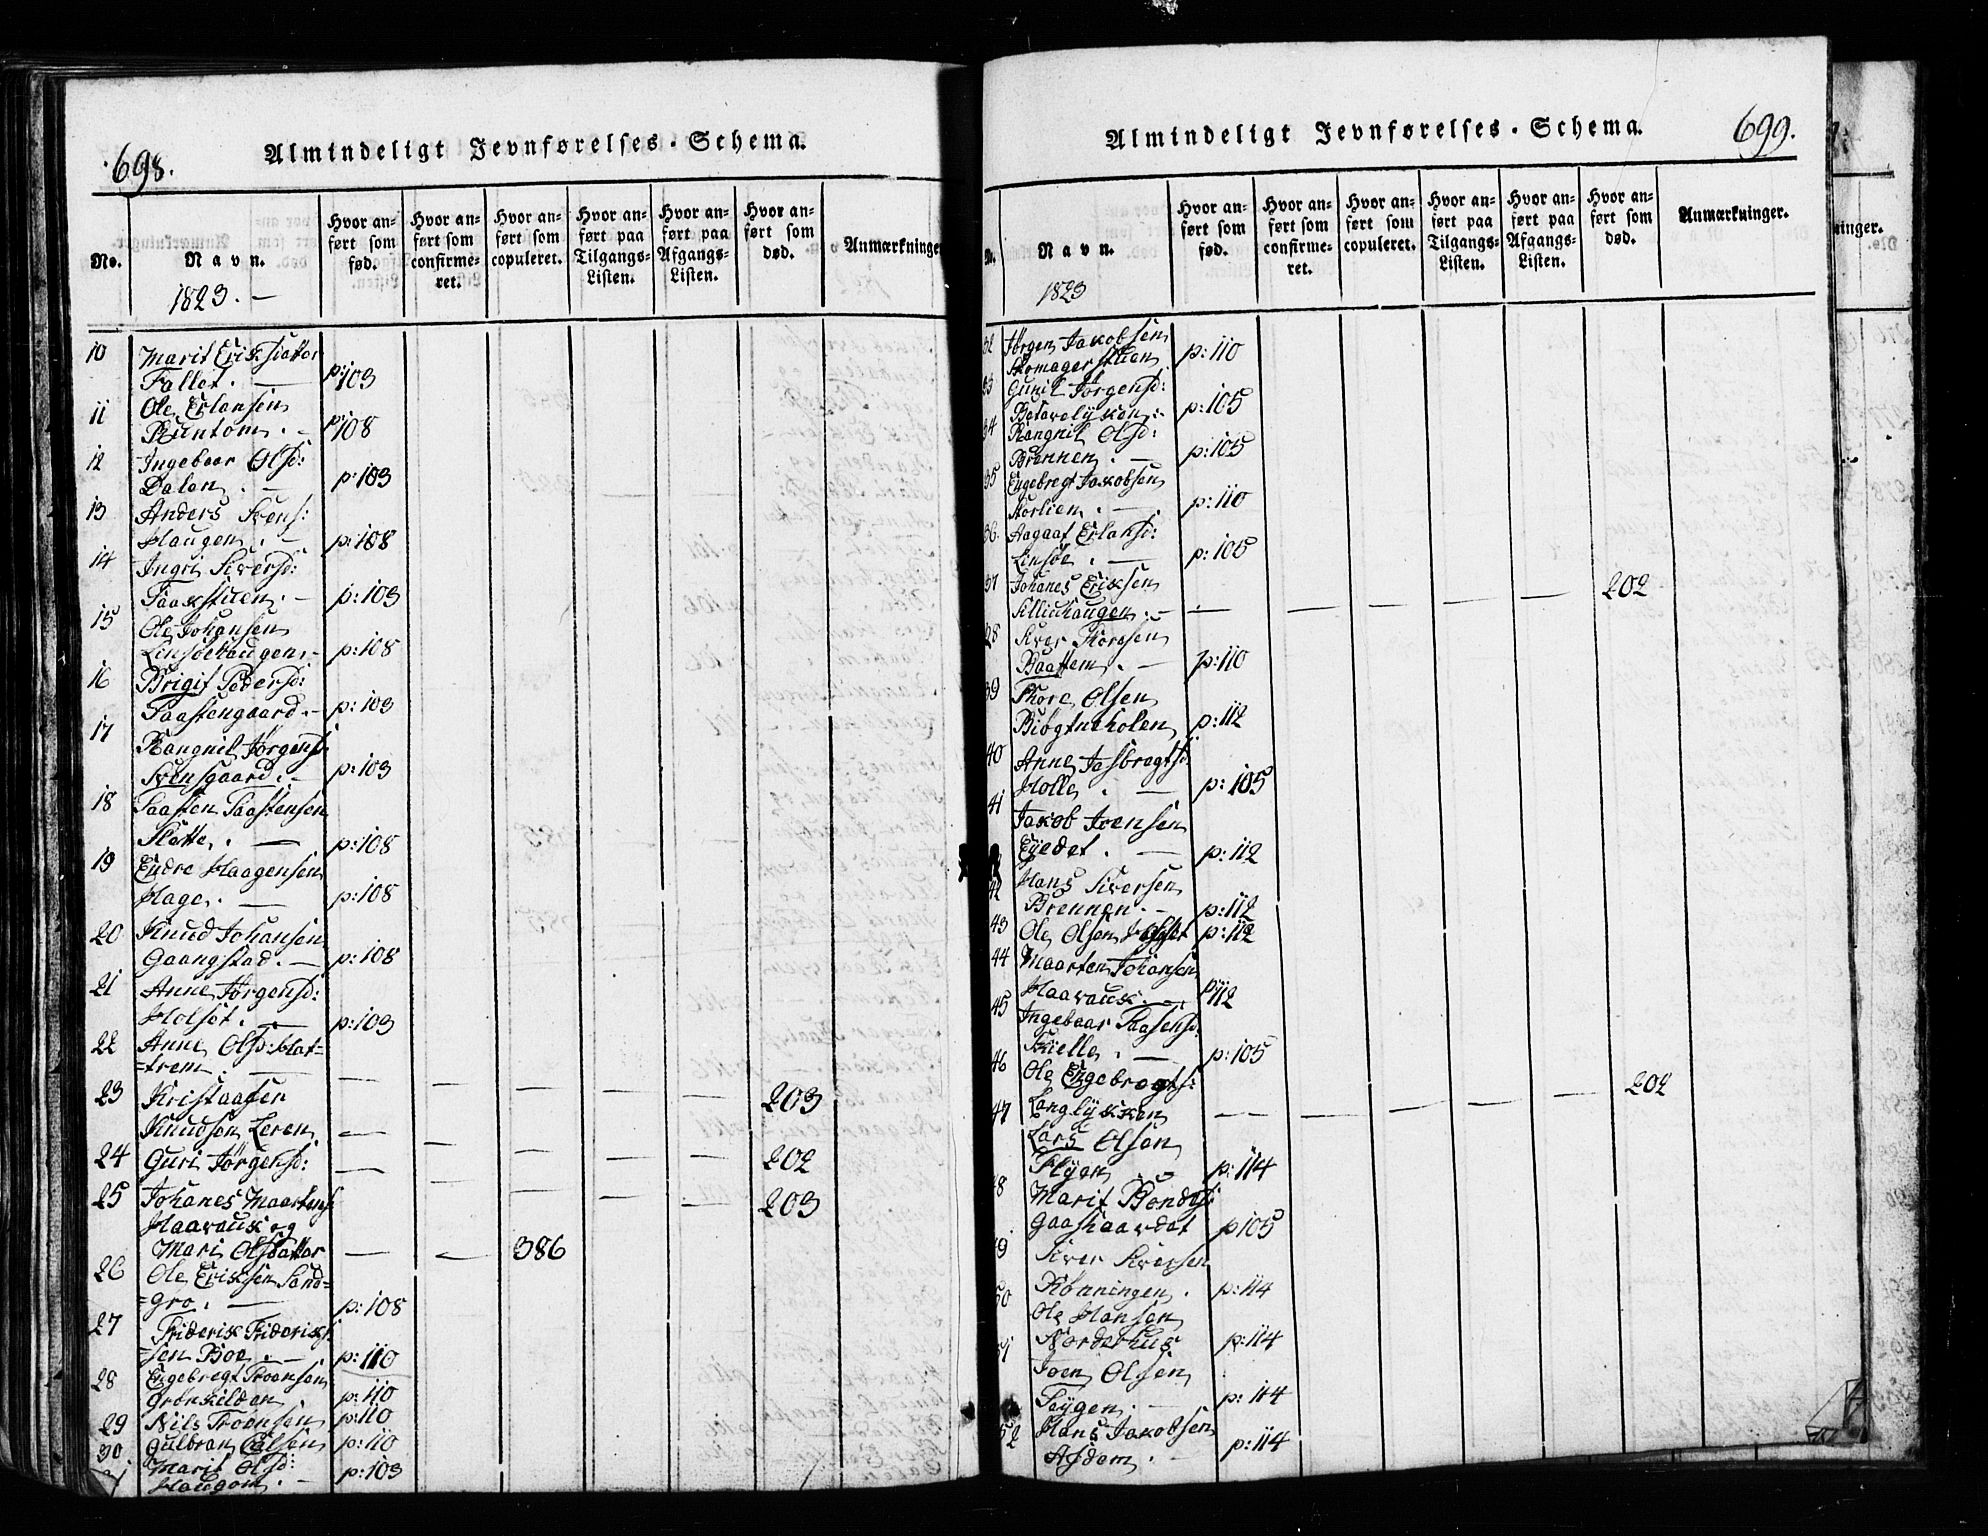 698.
Almindeligt Jevnførelses-Schema.
No.
Navn.
Hvor an-
ført som
fød.
Hvor an-
ført som
confirme-
ret.
Hvor an-
ført som
copuleret.
Hvor an-
ført paa
Tilgangs-
Listen.
Hvor an-
ført paa
Afgangs-
Listen.
Hvor an-
ført som
død.
Anmærkninger
1823. —
10 Marit Eriksdatter
Fallet. — p: 103
11 Ole Erlansen
Runtom. — p: 108
12 Ingebaar Olsd:
Dalen. — p: 103
13 Anders Svens:
Haugen. — p: 108
14 Ingri Siversd:
Taaxstuen. — p: 103
15 Ole Johansen
Linsøehaugen. — p: 108
16 Brigit Pedersd:
Paastengaard. — p: 103
17 Rangnil Jørgensd
Svensgaard. — p: 103
18 Paasten Paastensen
Slette. — p: 108
19 Endre Haagensen
Hage. — p: 108
20 Knud Johansen
Gaangstad. — p: 108
21 Anne Jørgensd:
Holset. — p: 103
22 Anne Olsd: Slat-
-trem. — — — — — — 203
23 Kristaafer
Knudsen Leren — — — — — 202
24 Guri Jørgensd: — — — — — 203
25 Johanes Maartens
Haavauk og
Mari Olsdatter — — 386
26 Ole Eriksen Sand-
-gro. — p: 108
27 Friderik Frideriks
-sen Boe. — p: 110
28 Engebregt Troensen
Grønkilden p: 110
29 Nils Troensen p: 110
30 Gulbran p: 110
Marit Olsd:
Haugom. — p: 103
699.
Almindeligt Jevnførelses-Schema.
N.
Navn.
Hvor an-
ført som
fød.
Hvor an-
ført som
confirme-
ret.
Hvor an-
ført som
copuleret.
Hvor an-
ført paa
Tilgangs-
Listen.
Hvor an-
ført paa
Afgangs-
Listen.
Hvor an-
ført som
død.
Anmærkninger.
1823
32 Jørgen Jakobsen
Skomagerstuen p: 110
33 Gunil Jørgensd:
p: 105
34 Rangnil Olsd:
Brennen. — p: 105
35 Engebregt Jakobsen
Aorlien. — p: 110
36 Aagaat Erlansd:
Linsøe. — p: 105
37 Johanes Eriksen
Killiuhaugen. — — — — — — 202
28 Siver Thoresen
Baattem. — p: 110
39 Thore Olsen
Biøgtneholen p: 112
40 Anne Jasbregtsd
Holle. — p: 105
41 Jakob Joensen
Eyedet. — p: 112
42 Hans Siversen
Brennen. — p: 112
43 Ole Olsen p: 112
44 Maarten Johansen
Haavauk. — p: 112
45 Ingebaar Paasensd:
Skielle. — p: 105
46 Ole Engebregts:
Langlykken — — — — — 202
47 Lars Olsen
Flyen p: 114
8 Marit Bendigs:
Gaashaardet p 105
9 Siver Siversen
Rønningen. p: 114
50 Ole Hansen
Norderhus p: 114
51 Joen Olsen
Søygen. — p: 114
52 Hans Jakobsen
Asdem. — p: 114
inger.